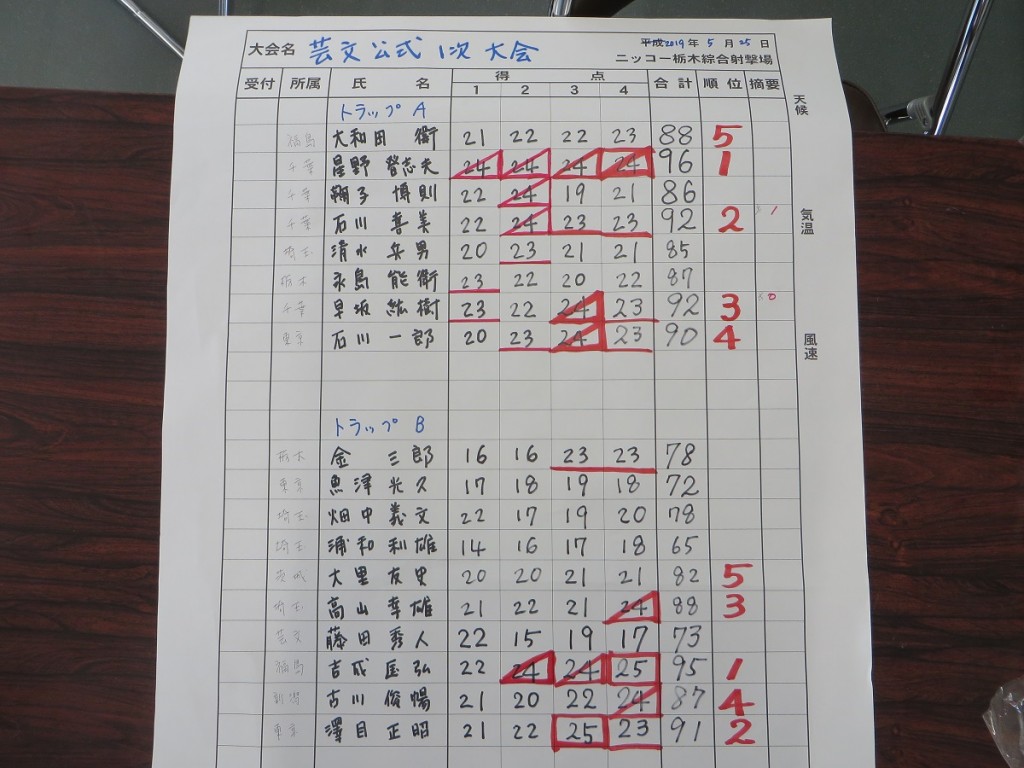 大会名 芸文公式 1次 大会 平成2019年 5月 25日
ニッコー栃木綜合射撃場
受付 所属 氏 名 得 点 合計 順位 摘要
1 2 3 4
天候
トラップ A
福島 大和田 衛 21 22 22 23 88 5
千葉 星野 登志夫 24 24 24 24 96 1
千葉 鞠子 博則 22 24 19 21 86
気温
千葉 石川 喜美 22 24 23 23 92 2 1
埼玉 清水 兵男 20 23 21 21 85
栃木 永島 能衛 23 22 20 22 87
千葉 早坂 紘樹 23 22 24 23 92 3 0
東京 石川 一郎 20 23 24 23 90 4
風速
トラップ B
栃木 金 三郎 16 16 23 23 78
東京 魚津光久 17 18 19 18 72
埼玉 畑中義文 22 17 19 20 78
埼玉 浦和利雄 14 16 17 18 65
茨城 大里友史 20 20 21 21 82 5
埼玉 高山幸雄 21 22 21 24 88 3
藤田秀人 22 15 19 17 73
福島 吉成匡弘 22 24 24 25 95 1
新潟 古川俊暢 21 20 22 24 87 4
東京 澤目正昭 21 22 25 23 91 2